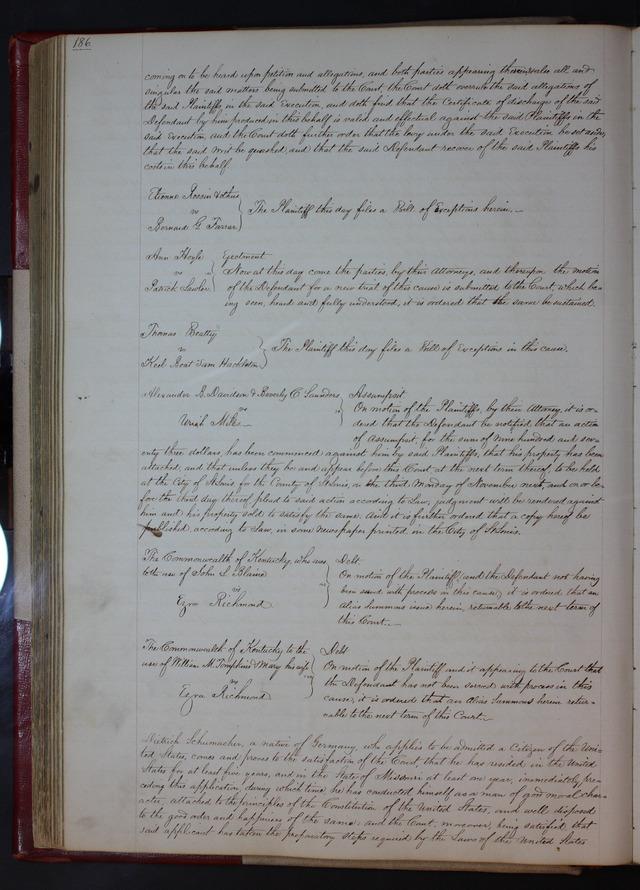 186.
coming on to be heard upon petition and allegations, and both parties appearing and
singular the said matters being submitted to the Court, the Court doth overrule the said allegations of
the said Plaintiffs in the said Execution, and doth find that the Certificate of discharge of the said
Defendant by him produced in this behalf is valid and effectual against the said Plaintiffs in the
said Execution, and the Court doth further order that the levy under the said Execution be set aside,
that the said Writ be quashed, and that the said Defendant recover of the said Plaintiffs his
costs in this behalf.
Etienne
vs
Bernard G. Farrar
The Plaintiff this day files a Bill of Exceptions herein.
Ann Hoyle
vs
Patrick Lawler
Ejectment
Now at this day come the parties, by their Attorneys, and thereupon the motion
of the Defendant for a new trial of this cause is submitted to the Court, which be-
ing seen, heard and fully understood, it is ordered that the same be sustained.
Thomas Beatty
vs
Keel Boat Sam
The Plaintiff this day files a Bill of Exceptions in this cause.
Alexander B. Davidson & Beverly C. Saunders
vs
Uriah Miles
Assumpsit
On motion of the Plaintiffs, by their Attorney, it is or-
dered that the Defendant be notified that an action
of Assumpsit, for the sum of Nine hundred and sev-
enty three dollars, has been commenced against him by said Plaintiffs, that his property has been
attached, and that unless they be and appear before this Court at the next term thereof, to be held
at the City of St Louis for the County of St Louis, on the third Monday of November next, and on or be-
fore the third day thereof plead to said action according to Law, judgment will be rendered against
him and his property sold to satisfy the same. And it is further ordered that a copy hereof be
published, according to Law, in some Newspaper printed in the City of St Louis.
The Commonwealth of Kentucky, who sues
to the use of John L. Blaine
vs
Ezra Richmond
Debt.
On motion of the Plaintiff, and the Defendant not having
been served with process in this cause, it is ordered that an
alias summons issue herein, returnable to the next term of
this Court.
The Commonwealth of Kentucky to the
use of William M. Tompkins & Mary his wife
vs
Ezra Richmond
Debt
On motion of the Plaintiff and it appearing to the Court that
the Defendant has not been served with process in this
cause, it is ordered that an alias Summons herein retur-
nable to the next term of this Court.
Dietrich Schumacher, a native of Germany, who applies to be admitted a Citizen of the Uni-
ted States, comes and proves to the satisfaction of the Court, that he has resided in the United
States for at least five years, and in the State of Missouri at least one year, immediately pre-
ceding this application, during which time he has conducted himself as a man of good moral char-
acter, attached to the principles of the Constitution of the United States, and well disposed
to the good order and happiness of the same: and the Court, moreover, being satisfied that
said applicant has taken the preparatory steps required by the Laws of the United States